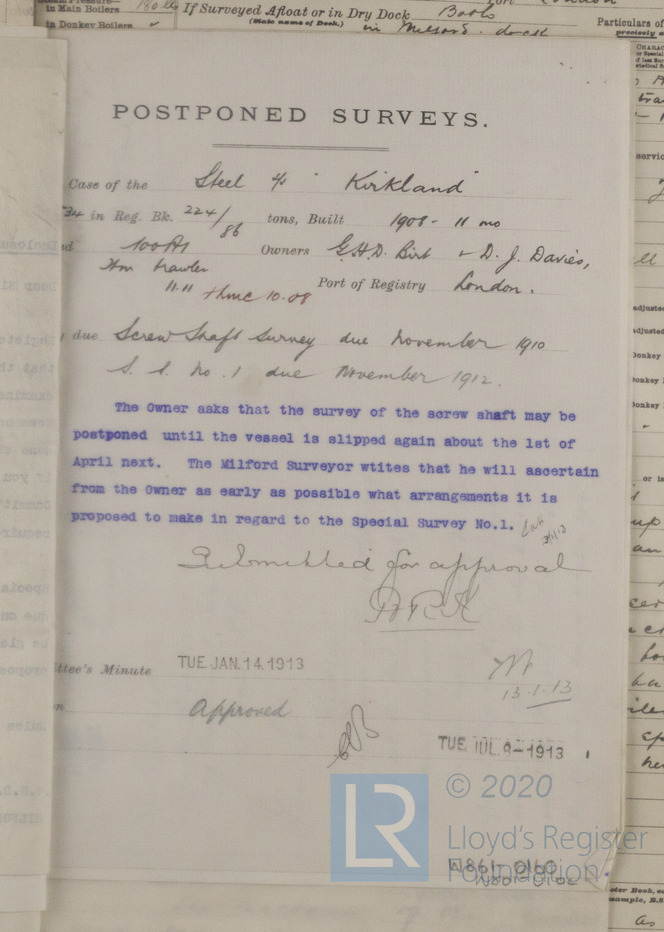 in Main Boilers
If Surveyed Afloat or in Dry Dock Both
(State name of Dock.) in Milford dock
Particulars of
in Donkey Boilers
POSTPONED SURVEYS.
Case of the Steel "Kirkland"
34 in Reg. Bk. 224/86 tons, Built 1908 - 11 mo
100A1 Owners G.H.D. Birt & D. J. Davies,
Stm trawler Port of Registry London.
11.11 + LMC 10.08
due Screw Shaft Survey due November 1910
S. S. No. 1 due November 1912.
The Owner asks that the survey of the screw shaft may be
postponed until the vessel is slipped again about the 1st of
April next. The Milford Surveyor wtites that he will ascertain
from the Owner as early as possible what arrangements it is
proposed to make in regard to the Special Survey No.1.
Submitted for approval
ttee's Minute TUE. JAN. 14. 1913
13.1.13
Approved
TUE. JUL. 9-1913
LR
© 2020
Lloyd's Register
Foundation